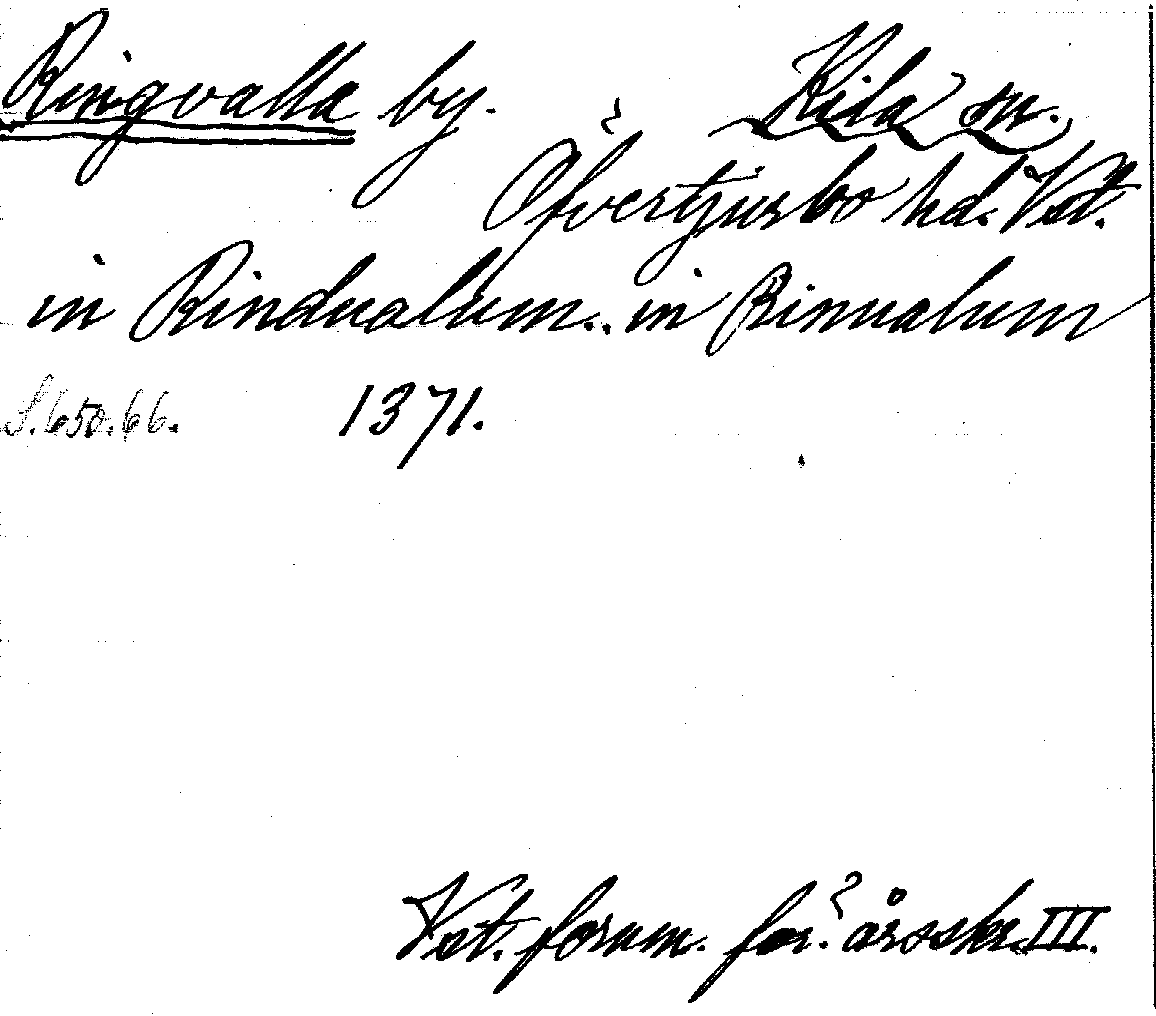 Ringvalla by. Kila sn.
Öfvertjurbo hd. Vstl.
in Rindualum.. in Rinualum
S. 650. 66. 1371.
Vst. fornm. för. årsskr. III.